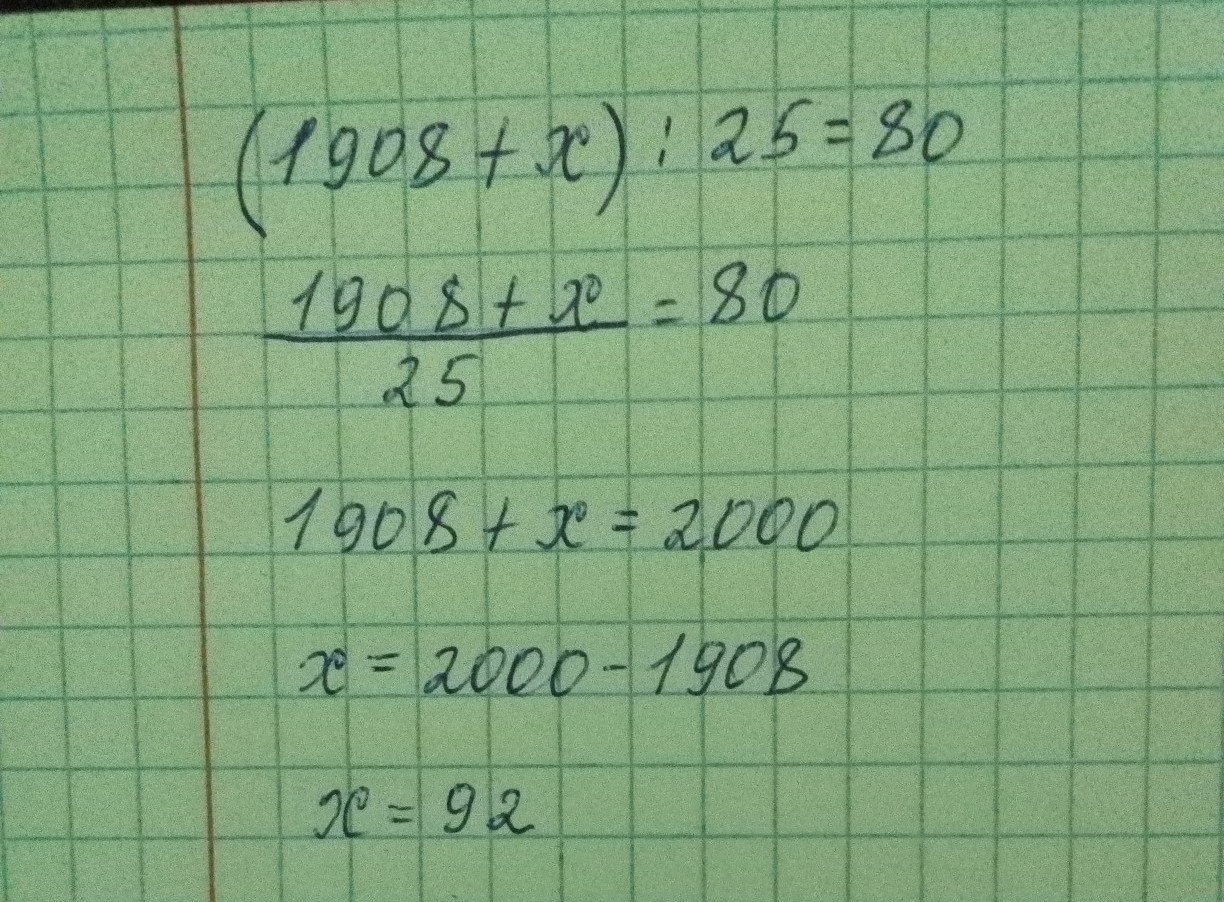 (1908 + x) : 25 = 80
1908 + x = 80
25
1908 + x = 2000
x = 2000 - 1908
x = 92